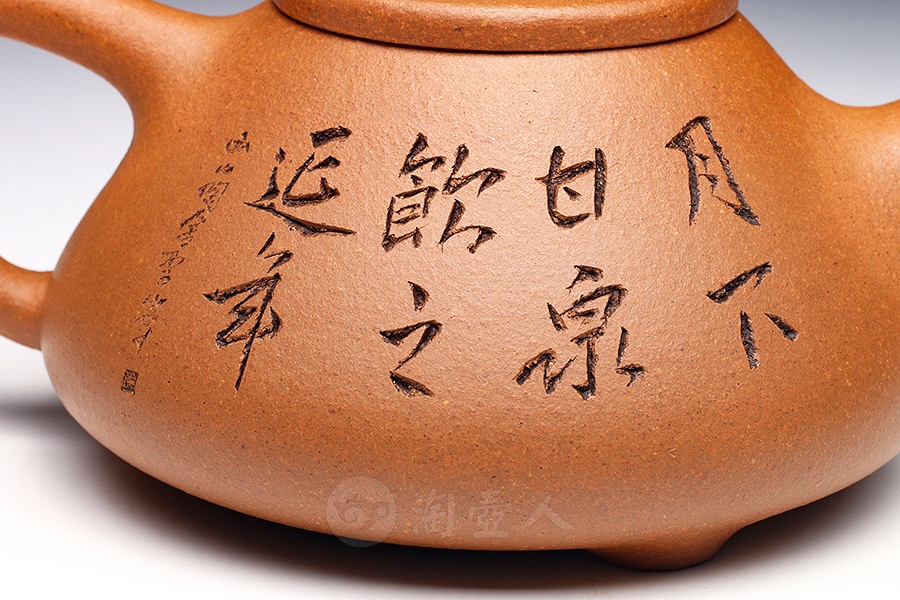 月下
甘泉
飲之
延年
淘壺人